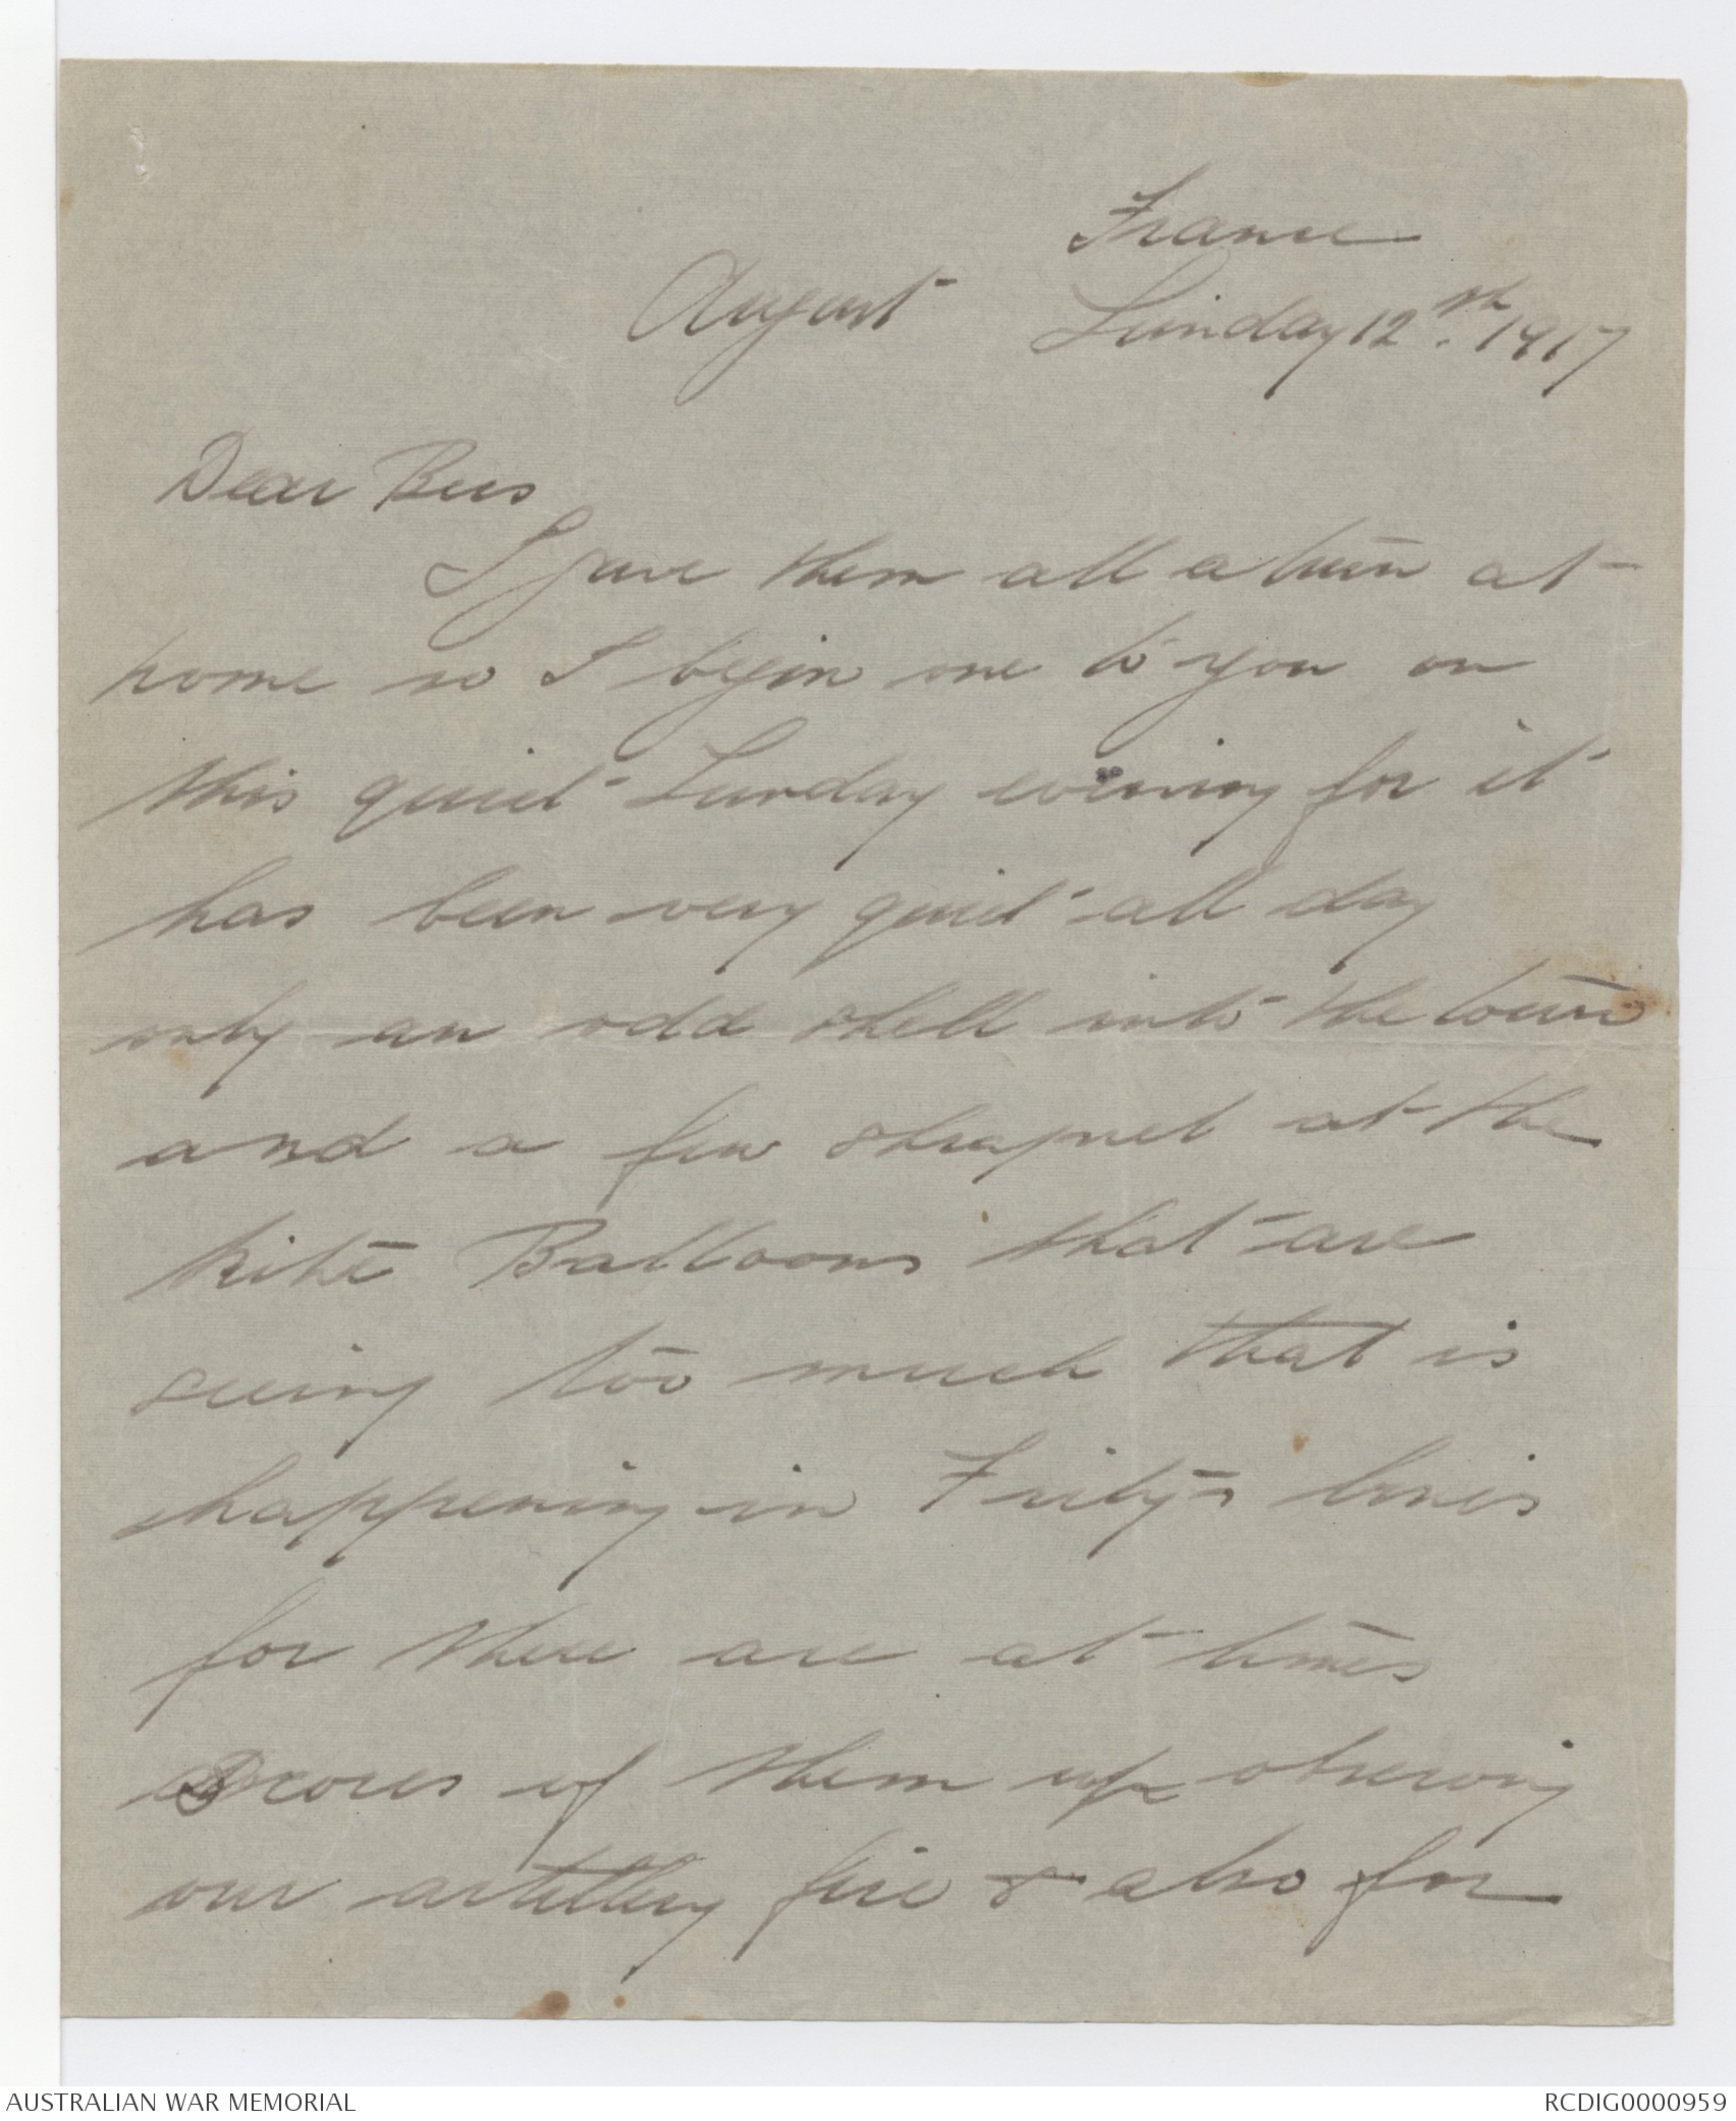 France
August Sunday 12th. 1917
Dear Bees
I gave them all a turn at
home so I begin one to you on
this quiet Sunday evening for it
has been very quiet all day
only an odd shell into the town
and a few shrapnel at the
kite Balloons that are
seeing too much that is
happening in Fritz's lines
for there are at times
scores of them up observing
our artillery fire & also for
AUSTRALIAN WAR MEMORIAL
RCDIG0000959